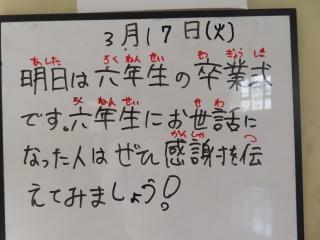 3月17日(火)
あした ろくねんせい そつぎょうしき
明日は六年生の卒業式
ろくねんせい せわ
です。六年生にお世話に
かんしゃ つた
なった人はぜひ感謝を伝
えてみましょう!